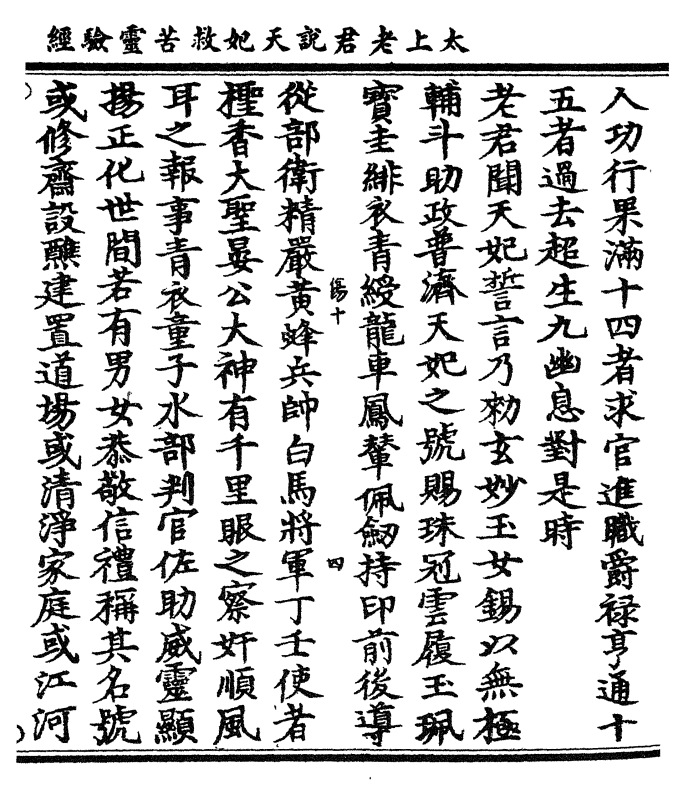 太上老君說天妃救苦靈驗經
人功行果滿十四者求官進職爵祿亨通十
五者過去超生九幽息對是時
老君聞天妃誓言乃勑玄妙玉女錫以無極
輔斗助政普濟天妃之號賜珠冠雲履玉珮
寶圭緋衣青綬龍車鳳輦佩劒持印前後導
傷十
四
從部衛精嚴黃蜂兵帥白馬將軍丁壬使者
檉香大聖晏公大神有千里眼之察奸順風
耳之報事青衣童子水部判官佐助威靈顯
揚正化世間若有男女恭敬信禮稱其名號
或修齋設醮建置道場或清淨家庭或江河